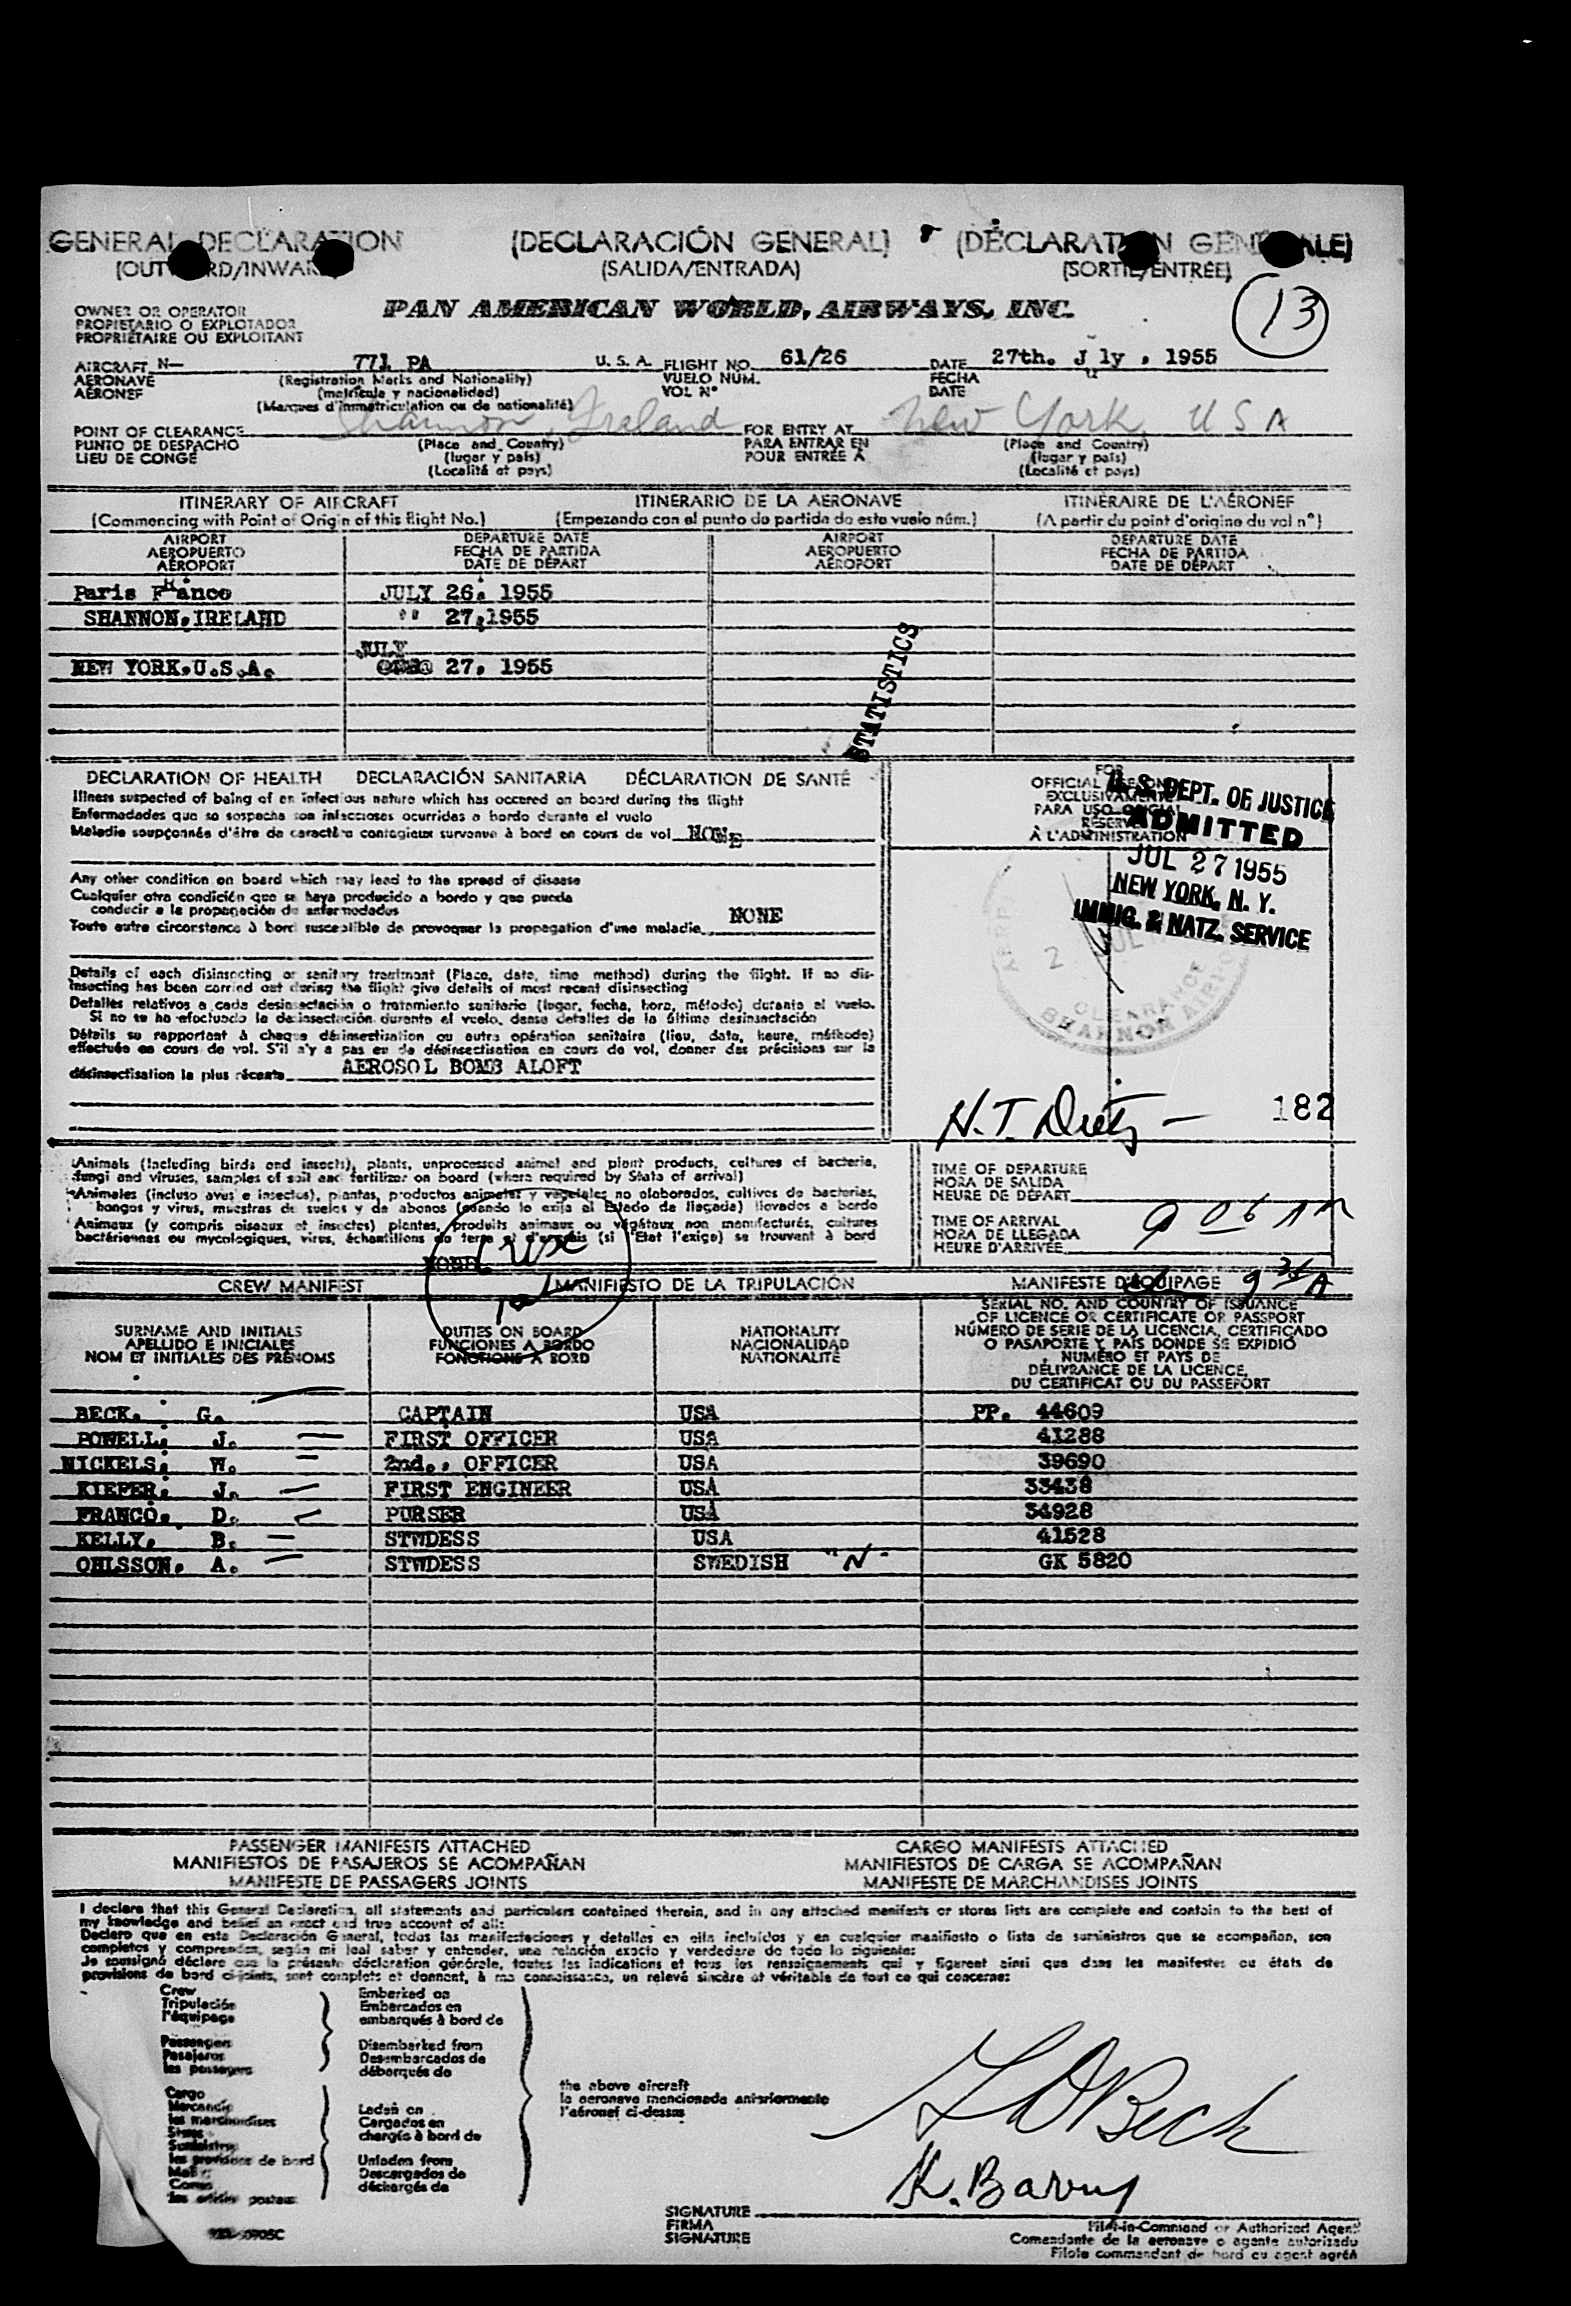 GENERAL DECLARATION (DECLARACIÓN GENERAL) (DÉCLARATION GENERALE)
(OUTWARD/INWARD) (SALIDA/ENTRADA) (SORTIE/ENTRÉE)
13
OWNER OR OPERATOR PAN AMERICAN WORLD AIRWAYS, INC.
PROPIETARIO O EXPLOTADOR
PROPRIÉTAIRE OU EXPLOITANT
AIRCRAFT N— 771 PA U. S. A. FLIGHT NO. 61/26 DATE 27th. July, 1955
AERONAVE (Registration Marks and Nationality) VUELO NUM. FECHA
AÉRONEF (matrícula y nacionalidad) VOL Nº DATE
(Marques d'immatriculation ou de nationalité)
POINT OF CLEARANCE Shannon, Ireland FOR ENTRY AT New York, USA
PUNTO DE DESPACHO (Place and Country) PARA ENTRAR EN (Place and Country)
LIEU DE CONGÉ (lugar y país) POUR ENTRÉE À (lugar y país)
(Localité et pays) (Localité et pays)
ITINERARY OF AIRCRAFT ITINERARIO DE LA AERONAVE ITINÉRAIRE DE L'AÉRONEF
(Commencing with Point of Origin of this flight No.) (Empezando con el punto de partida de este vuelo núm.) (A partir du point d'origine du vol nº)
AIRPORT DEPARTURE DATE AIRPORT DEPARTURE DATE
AEROPUERTO FECHA DE PARTIDA AEROPUERTO FECHA DE PARTIDA
AÉROPORT DATE DE DÉPART AÉROPORT DATE DE DÉPART
Paris France JULY 26. 1955
SHANNON, IRELAND " 27, 1955
JULY
NEW YORK, U.S.A. 27, 1955
STATISTICS
DECLARATION OF HEALTH DECLARACIÓN SANITARIA DÉCLARATION DE SANTÉ
Illness suspected of being of an infectious nature which has occured on board during the flight
Enfermedades que se sospecha son infecciosas ocurridas a bordo durante el vuelo
Maladie soupçonnée d'être de caractère contagieux survenue à bord en cours de vol NONE
Any other condition on board which may lead to the spread of disease
Cualquier otra condición que se haya producido a bordo y que pueda
conducir a la propagación de enfermedades
Toute autre circonstance à bord susceptible de provoquer la propagation d'une maladie NONE
Details of each disinsecting or sanitary treatment (Place, date, time method) during the flight. If no dis-
insecting has been carried out during the flight give details of most recent disinsecting
Detalles relativos a cada desinsectación o tratamiento sanitario (lugar, fecha, hora, método) durante el vuelo.
Si no se ha efectuado la desinsectación durante el vuelo, dense detalles de la última desinsectación
Détails se rapportant à chaque désinsectisation ou autre opération sanitaire (lieu, date, heure, méthode)
effectuée en cours de vol. S'il n'y a pas eu de désinsectisation en cours de vol, donner des précisions sur la
désinsectisation la plus récente AEROSOL BOMB ALOFT
FOR
OFFICIAL USE ONLY
EXCLUSIVAMENTE
PARA USO OFICIAL
RÉSERVÉ
À L'ADMINISTRATION
U. S. DEPT. OF JUSTICE
ADMITTED
JUL 27 1955
NEW YORK, N. Y.
IMMIG. & NATZ. SERVICE
CLEARANCE
SHANNON AIRPORT
H.T. Dietz — 182
Animals (Including birds and insects), plants, unprocessed animal and plant products, cultures of bacteria,
fungi and viruses, samples of soil and fertilizer on board (where required by State of arrival)
Animales (incluso aves e insectos), plantas, productos animales y vegetales no elaborados, cultivos de bacterias,
hongos y virus, muestras de suelos y de abonos (cuando lo exija el Estado de llegada) llevados a bordo
Animaux (y compris oiseaux et insectes) plantes, produits animaux ou végétaux non manufacturés, cultures
bactériennes ou mycologiques, virus, échantillons de terre et d'engrais (si l'Etat l'exige) se trouvent à bord
NONE
TIME OF DEPARTURE
HORA DE SALIDA
HEURE DE DÉPART
TIME OF ARRIVAL 9 06 AM
HORA DE LLEGADA
HEURE D'ARRIVÉE
CREW MANIFEST MANIFIESTO DE LA TRIPULACIÓN MANIFESTE D'ÉQUIPAGE
SURNAME AND INITIALS DUTIES ON BOARD NATIONALITY SERIAL NO. AND COUNTRY OF ISSUANCE
APELLIDO E INICIALES FUNCIONES A BORDO NACIONALIDAD OF LICENCE OR CERTIFICATE OR PASSPORT
NOM ET INITIALES DES PRÉNOMS FONCTIONS À BORD NATIONALITÉ NÚMERO DE SERIE DE LA LICENCIA, CERTIFICADO
O PASAPORTE Y PAÍS DONDE SE EXPIDIÓ
NUMÉRO ET PAYS DE
DÉLIVRANCE DE LA LICENCE,
DU CERTIFICAT OU DU PASSEPORT
BECK. G. CAPTAIN USA PP. 44609
POWELL, J. FIRST OFFICER USA 41288
NICKELS, W. 2nd., OFFICER USA 39690
KIEFER, J. FIRST ENGINEER USA 33438
FRANCO, D. PURSER USA 34928
KELLY, B. STWDESS USA 41528
OHLSSON, A. STWDESS SWEDISH "N" GK 5820
PASSENGER MANIFESTS ATTACHED CARGO MANIFESTS ATTACHED
MANIFIESTOS DE PASAJEROS SE ACOMPAÑAN MANIFIESTOS DE CARGA SE ACOMPAÑAN
MANIFESTE DE PASSAGERS JOINTS MANIFESTE DE MARCHANDISES JOINTS
I declare that this General Declaration, all statements and particulars contained therein, and in any attached manifests or stores lists are complete and contain to the best of
my knowledge and belief an exact and true account of all:
Declaro que en esta Declaración General, todas las manifestaciones y detalles en ella incluidos y en cualquier manifiesto o lista de suministros que se acompañan, son
completos y comprenden, según mi leal saber y entender, una relación exacta y verdadera de todo lo siguiente:
Je soussigné déclare que la présente déclaration générale, toutes les indications et tous les renseignements qui y figurent ainsi que dans les manifestes ou états de
provisions de bord ci-joints, sont complets et donnent, à ma connaissance, un relevé sincère et véritable de tout ce qui concerne:
Crew Embarked on
Tripulación Embarcados en
l'équipage embarqués à bord de
Passengers Disembarked from
Pasajeros Desembarcados de
les passagers débarqués de
the above aircraft
la aeronave mencionada anteriormente
l'aéronef ci-dessus
Cargo
Mercancía Laden on
les marchandises Cargados en
Stores chargés à bord de
Suministros
les provisions de bord Unladen from
Mail Descargados de
Correo déchargés de
les articles postaux
G D Beck
K. Barry
SIGNATURE
FIRMA Pilot-in-Command or Authorized Agent
SIGNATURE Comandante de la aeronave o agente autorizado
Pilote commandant de bord ou agent agréé